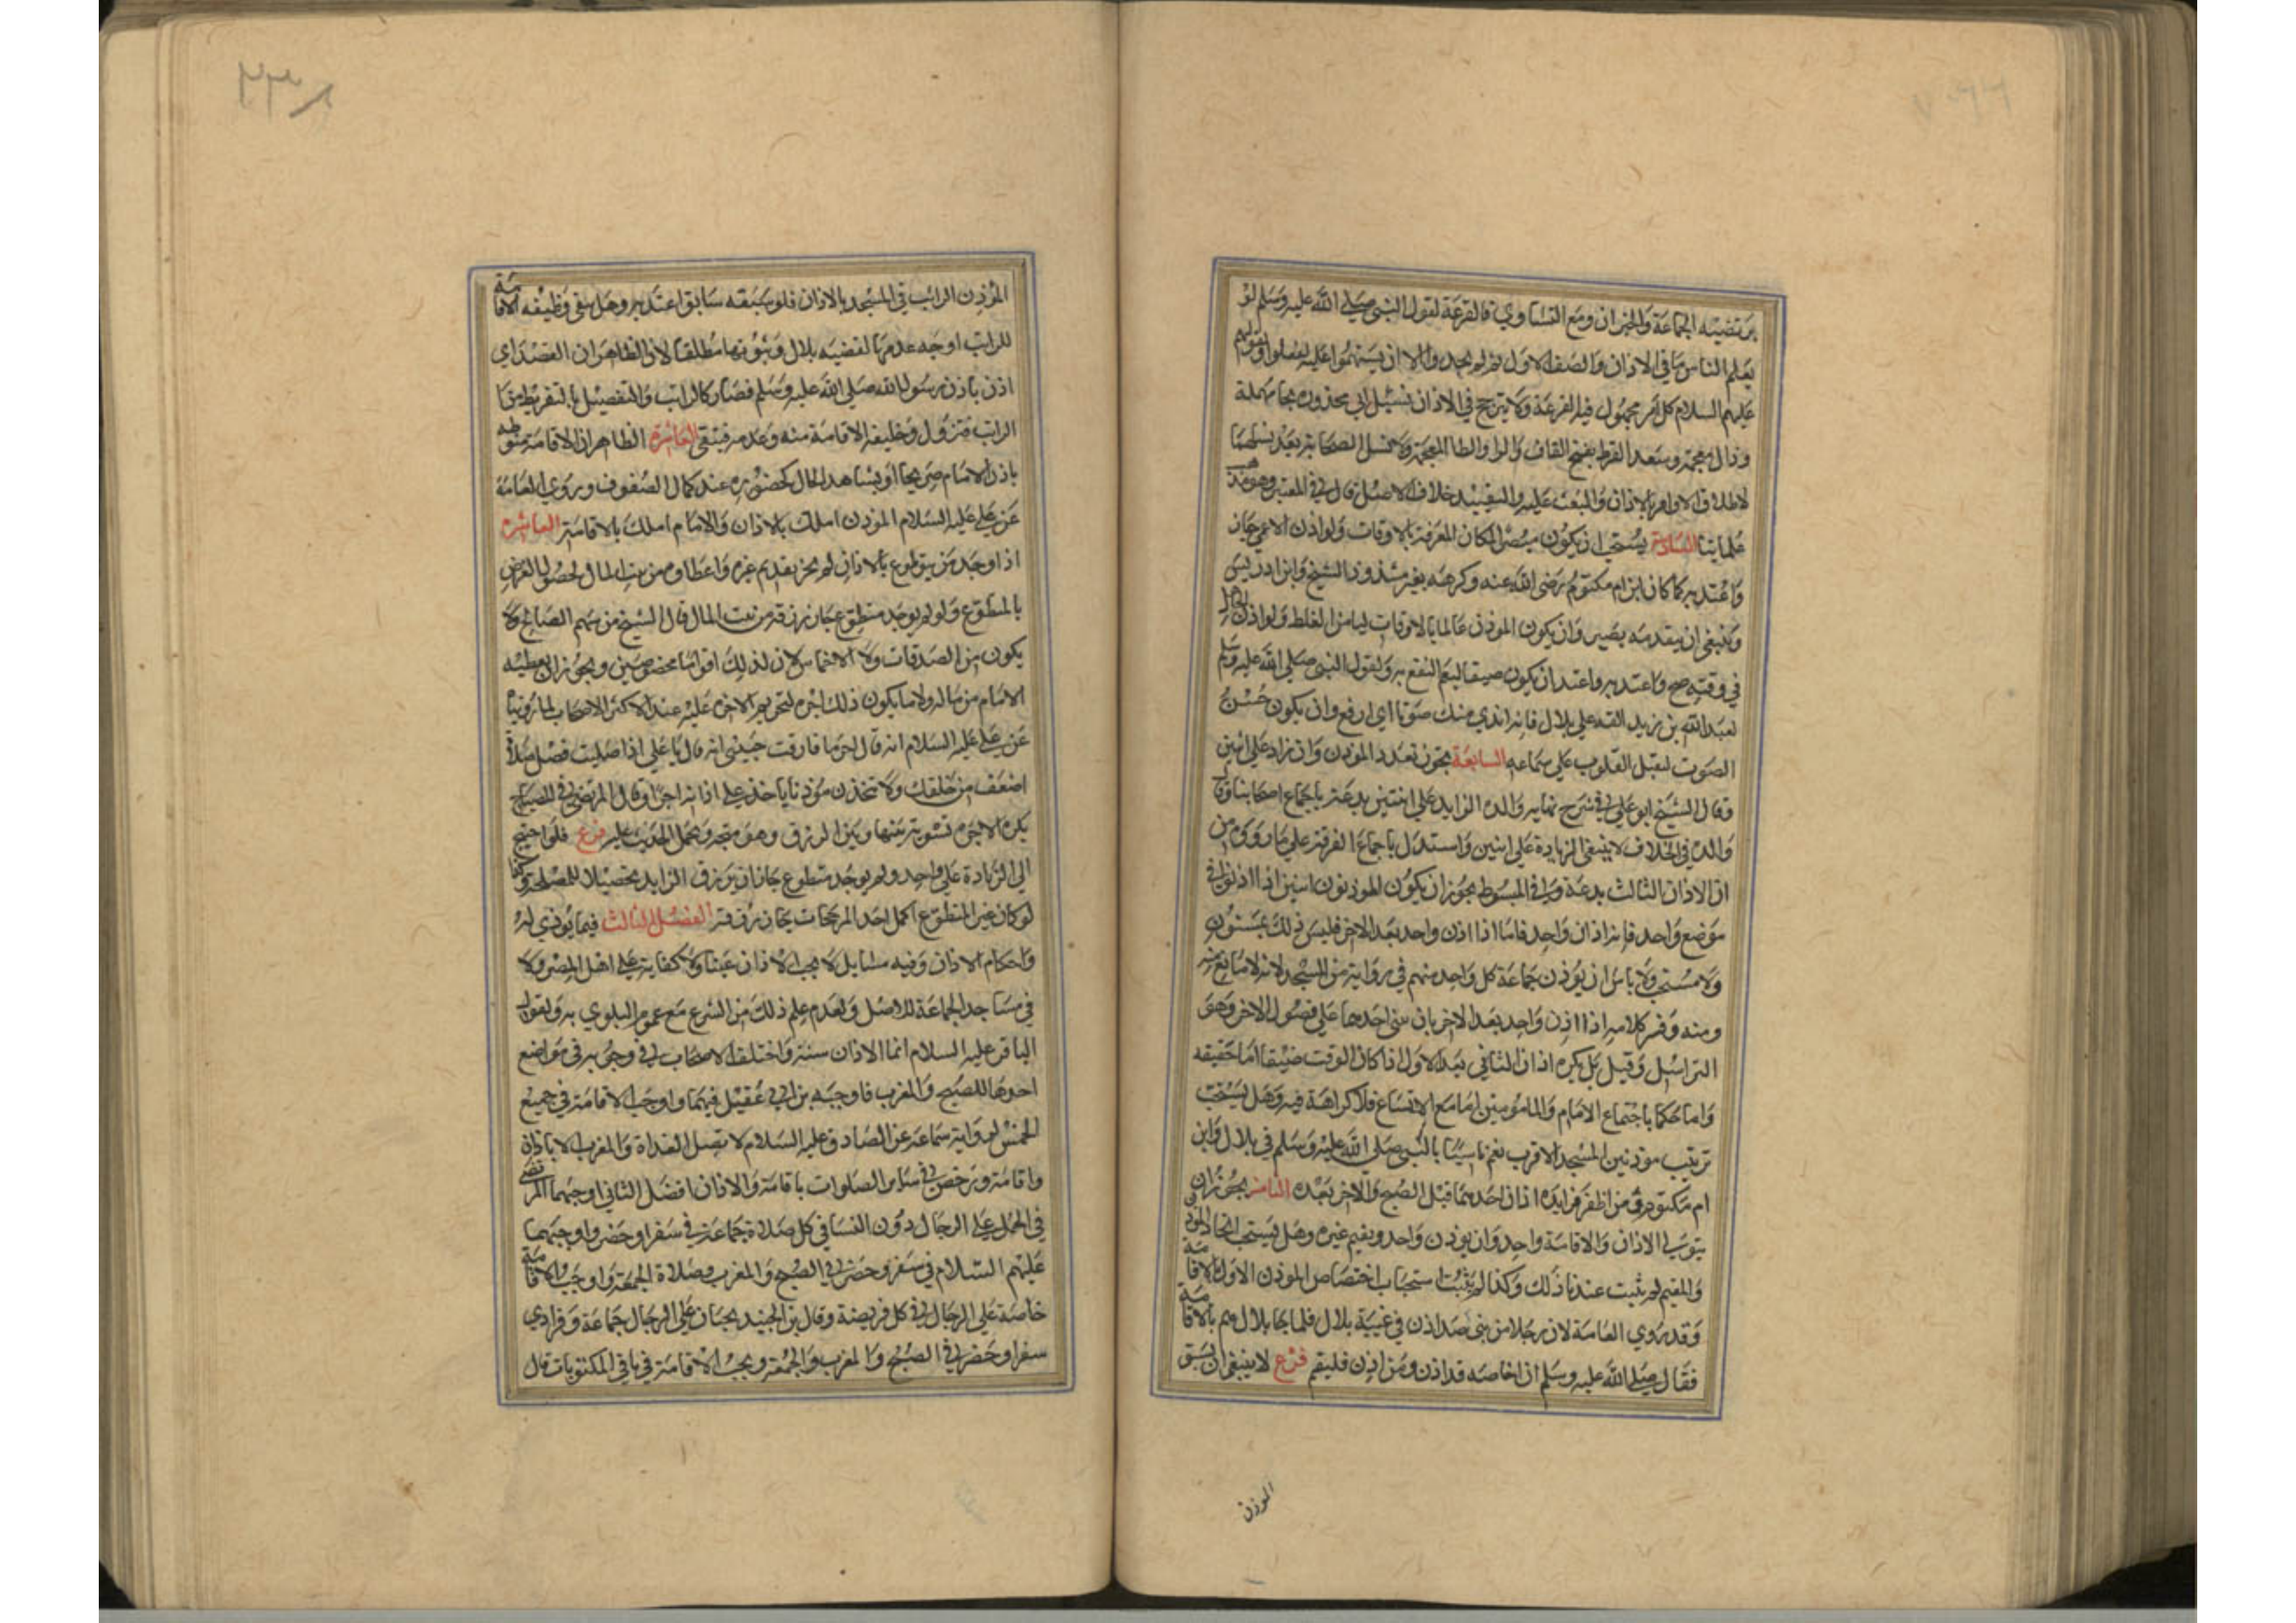 من تضيه الجماعة والجيران ومع التساوي فالقرعة لقول النبي صلى الله عليه وسلم لو
يعلم الناس ما في الاذان والصف الاول ثم لم يجدوا الا ان يستهموا عليه لفعلوا ولقولهم
عليهم السلام كل امر مجهول فيه القرعة ولا يترجح في الاذان نسل ابي محذوره بحا مهملة
وذال معجمة وسعد القرظ بفتح القاف والرا والظا المعجمة ولا نسل الصحابة بعد نسلهما
لاطلاق الاوامر بالاذان والبعث عليه والتقييد خلاف الاصل قال في المعتبر وهو مذهب
علمائنا السادسة يستحب ان يكون مبصرا لمكان المعرفة بالاوقات ولو اذن الاعمى جاز
واعتد به كما كان ابن ام مكتوم رضى الله عنه وكرهه بغير مسدد الشيخ وابن ادريس
وينبغى ان يتقدمه بصير وان يكون الموذن عالما بالاوقات ليامن الغلط ولو اذن الجاهل
في وقته صح واعتد به واعتد ان يكون صيتا ليعم النفع به ولقول النبى صلى الله عليه وسلم
لعبد الله بن زيد القه على بلال فانه اندى منك صوتا اي ارفع وان يكون حسن
الصوت لتقبل القلوب على سماعه السابعة يجوز تعدد الموذن وان زاد على اثنين
وقال الشيخ ابو علي في شرح نهايه والده الزايد على اثنتين بدعة باجماع اصحابنا وقال
والده في الخلاف لا ينبغى الزيادة على اثنين واستدل باجماع الفرقة على ما رووه من
ان الاذان الثالث بدعة وفي المبسوط يجوز ان يكون الموذنون اثنين اثنين اذا اذنوا في
موضع واحد فانه اذان واحد فاما اذا اذن واحد بعد الاخر فليس ذلك بمسنون
ولا مستحب ولا باس ان يوذن جماعة كل واحد منهم في زاوية من المسجد لانه لا مانع منه
ومنه وفسر كلامه اذا اذن واحد بعد الاخر بان يبنى احدهما على فصول الاخر وهو
التراسل وقيل بل يكره اذان الثاني بعد الاول اذا كان الوقت ضيقا اما حقيقه
واما حكما باجتماع الامام والمامومين اما مع الاتساع فلا كراهة فيه وهل يستحب
ترتيب موذنين المسجد الاقرب نعم تاسيا بالنبى صلى الله عليه وسلم في بلال وابن
ام مكتوم ومن اظهر فوايده اذان احدهما قبل الصبح والاخر بعده الثامنه يجوز ان
يتولى الاذان والاقامة واحد وان يوذن واحد ويقيم غيره وهل يستحب اتحاد الموذن
والمقيم لم يثبت عندنا ذلك وكذا لم يثبت استحباب اختصاص الموذن الاول بالاقامة
وقد روي العامة لان رجلا من بنى صدا اذن في غيبة بلال فلما جا بلال هم بالاقامة
فقال صلى الله عليه وسلم ان اخا صدا قد اذن ومن اذن فليقم فرع لا ينبغى ان يسبق
الموذن
المؤذن الراتب في المسجد بالاذان فلو سبقه سابق اعتد به وهل يبقى وظيفه الاقامة
للراتب اوجه عدمها لقضيه بلال وثبوتها مطلقا لان الظاهر ان الصداي
اذن باذن رسول الله صلى الله عليه وسلم فصار كالراتب والتفصيل بالتفريط من
الراتب فتزول وظيفه الاقامة منه وعدمه فتبقى العاشرة الظاهر ان الاقامة منوطه
باذن الامام صريحا او بشاهد الحال كحضوره عند كمال الصفوف وروى العامة
عن علي عليه السلام الموذن املك بالاذان والامام املك بالاقامة العاشره
اذا وجد من يتطوع بالاذان لم يجز تقديم غيره واعطاوه من بيت المال لحصول الغرض
بالمتطوع ولو لم يوجد متطوع جاز رزقه من بيت المال قال الشيخ من سهم المصالح ولا
يكون من الصدقات ولا الاخماس لان لذلك اقواما مخصوصين ويجوز ان يعطيه
الامام من ماله ولا يكون ذلك اجرة لتحريم الاجرة عليه عند الاكثر الاصحاب لما روينا
عن علي عليه السلام انه قال اخر ما فارقت حبيبى انه قال يا علي اذا صليت فصل صلاة
اضعف من خلفك ولا تتخذن موذنا ياخذ على اذانه اجرا وقال المرتضى في المصباح
يكره الاجرة تسوية بينها وبين الرزق وهو متجه ويحمل الحديث عليه فرع فلو احتيج
الى الزيادة على واحد ولم يوجد متطوع جاز ان يرزق الزايد تحصيلا للمصلحة وكذا
لو كان غير المتطوع اكمل احد المرجحات جاز رزقه الفصل الثالث فيما يوذن له
واحكام الاذان وفيه مسايل لا يجب الاذان عينا ولا كفاية على اهل المصر ولا
في مساجد الجماعة للاصل ولعدم علم ذلك من الشرع مع عموم البلوي به ولقول
الباقر عليه السلام انما الاذان سنة واختلف الاصحاب في وجوبه في مواضع
احدها للصبح والمغرب فاوجبه بن ابي عقيل فيهما واوجب الاقامة في جميع
الخمس لرواية سماعة عن الصادق عليه السلام لا تصل الغداة والمغرب الا باذان
واقامة ورخص في سائر الصلوات باقامة والاذان افضل الثاني اوجبهما المرتضى
في الجمل على الرجال دون النسا في كل صلاة جماعة في سفر او حضر واوجبهما
عليهم السلام في سفر وحضر في الصبح والمغرب وصلاة الجمعة واوجب الاقامة
خاصة على الرجال في كل فريضة وقال بن الجنيد يجبان على الرجال جماعة وفرادي
سفرا وحضرا في الصبح والمغرب والجمعة ويجب الاقامة في باقي المكتوبات قال